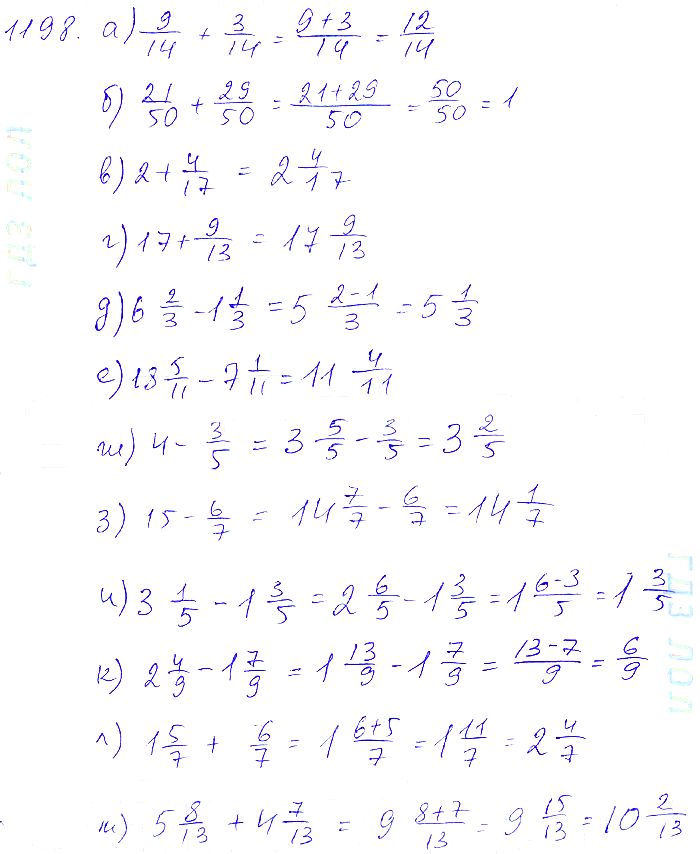 1198. а) 9/14 + 3/14 = (9+3)/14 = 12/14
б) 21/50 + 29/50 = (21+29)/50 = 50/50 = 1
в) 2 + 4/17 = 2 4/17
г) 17 + 9/13 = 17 9/13
д) 6 2/3 - 1 1/3 = 5 (2-1)/3 = 5 1/3
е) 18 5/11 - 7 1/11 = 11 4/11
ж) 4 - 3/5 = 3 5/5 - 3/5 = 3 2/5
з) 15 - 6/7 = 14 7/7 - 6/7 = 14 1/7
и) 3 1/5 - 1 3/5 = 2 6/5 - 1 3/5 = 1 (6-3)/5 = 1 3/5
к) 2 4/9 - 1 7/9 = 1 13/9 - 1 7/9 = (13-7)/9 = 6/9
л) 1 5/7 + 6/7 = 1 (6+5)/7 = 1 11/7 = 2 4/7
м) 5 8/13 + 4 7/13 = 9 (8+7)/13 = 9 15/13 = 10 2/13